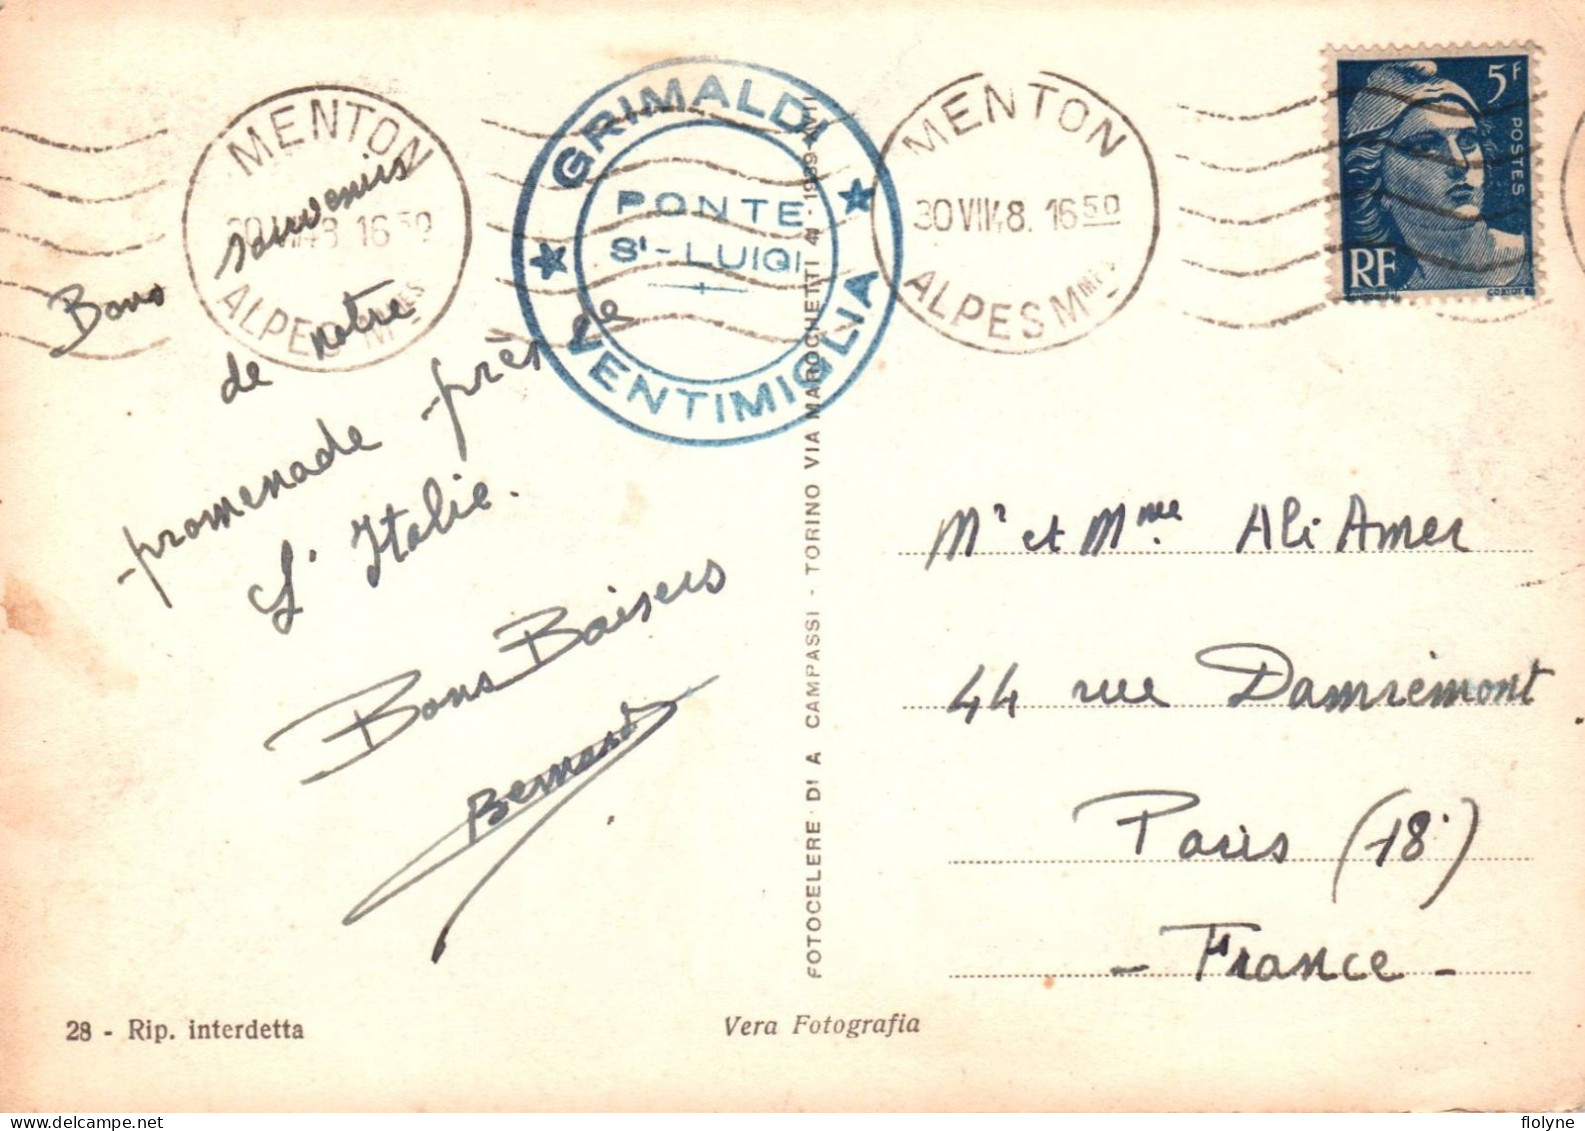 MENTON
30 VII 48 16 50
ALPES Mmes
GRIMALDI
PONTE
St-LUIGI
VENTIMIGLIA
MENTON
30 VII 48. 16 50
ALPES Mmes
5F
POSTES
RF
Bons souvenirs
de notre
promenade près de
L'Italie.
Bons Baisers
Bernard
FOTOCELERE DI A CAMPASSI - TORINO VIA MAROCHETTI 41 - 1939 - XVII
Mr et Mme Ali Amer
44 rue Damrémont
Paris (18.)
- France -
28 - Rip. interdetta
Vera Fotografia
flolyne